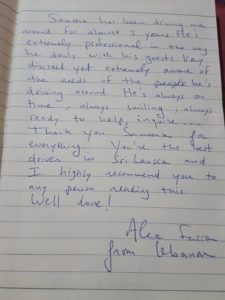 Sameera has been driving me
around for almost 3 years. He's
extremely professional in the way
he deals with his guests. Very
discreet yet extremely aware of
the needs of the people he's
driving around. He's always on
time, always smiling, always
ready to help, inquire ....
Thank you Sameera for
everything. You're the best
driver in Sri Lanka and
I highly recommend you to
any person reading this.
Well done!
from Lebanon